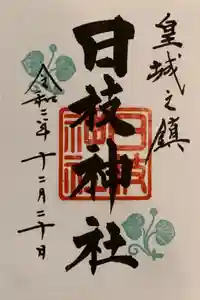 皇城之鎮
日枝神社
令和二年十二月二十日
日枝神社